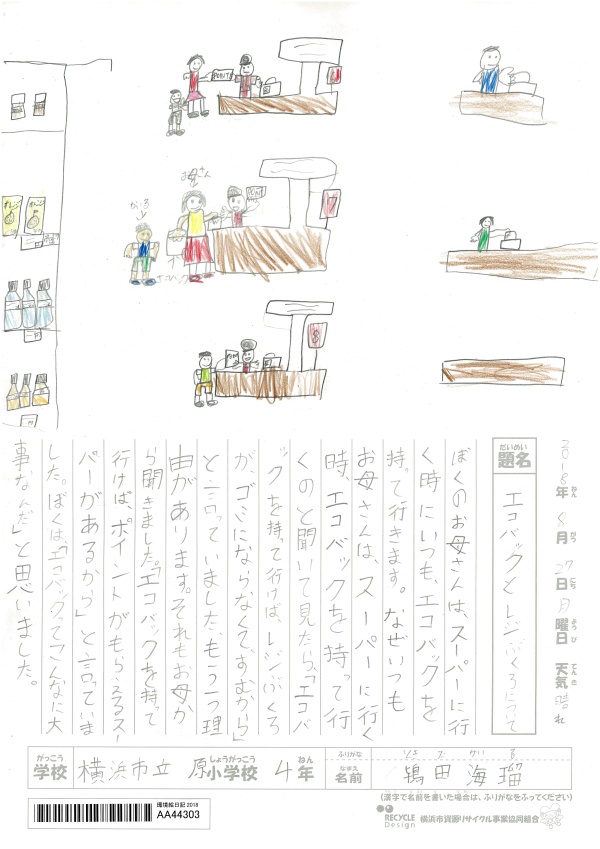 POINT
6
お母さん
かいる
POINT
7
エコバック
POINT
8
オレンジ
オレンジ
2018年 8月 27日 月曜日 天気 晴れ
ねん がつ にち ようび てんき
だいめい
題名
エコバックとレジぶくろについて
ぼくのお母さんは、スーパーに行
く時にいつも、エコバックを
持って行きます。なぜいつも
お母さんは、スーパーに行く
時、エコバックを持って行
くのと聞いて見たら、「エコバ
ックを持って行けば、レジぶくろ
が、ゴミにならなくて、すむから」
と言っていました、もう一つ理
由があります。それもお母か
ら聞きました。「エコバックを持って
行けば、ポイントがもらえるスー
パーがあるから」と言っていま
した。ぼくは、「エコバックってこんなに大
事なんだ」と思いました。
がっこう
学校
横浜市立 原小学校 4年
しょうがっこう ねん
ふりがな
なまえ
名前
田 海瑠
かい る
(漢字で名前を書いた場合は、ふりがなをふってください)
環境絵日記 2018
AA44303
RECYCLE Design
横浜市資源リサイクル事業協同組合